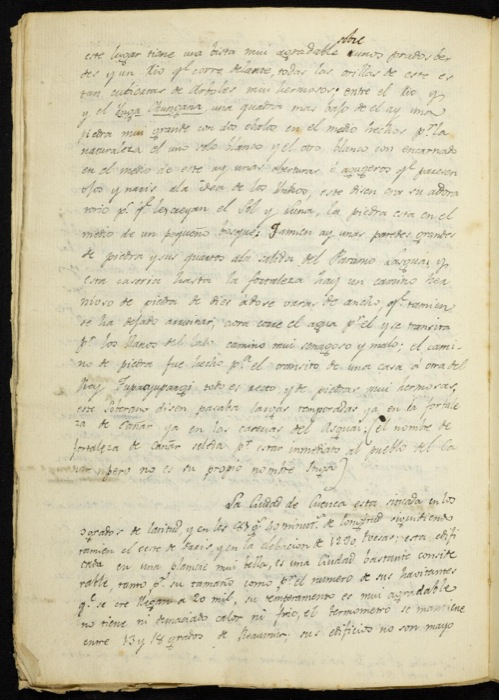 este lugar tiene una bista mui agradable sobre unos prados ber
des y un Rio q.e corre delante, todas las orillas de este es
tan cubiertas de Arboles mui hermosos; entre el Rio y
y el Inga Chungana una quadra mas bajo de el ay una
piedra mui grande con dos en el medio hechos p.r la
naturaleza el uno solo blanco y el otro blanco con encarnado
en el medio de este ay unas aberturas ó agugeros q.e parecen
ojos y naris ala idea de los Yndios, este disen era su adora
torio p.r q.e lo creyan el Sol y Luna, la piedra esta en el
medio de un pequeño bosque: Tamien ay unas paredes grandes
de piedra y sus quartos ala salida del Paramo y
esta caseria hasta la fortaleza hay un camino
de piedra de dies adose varas de ancho, q.e tamien
se ha dejado arruinar, aora corre el agua p.r el y se transita
p.r los llanos del lado camino mui senagoso y malo; el cami
no de piedra fue hecho p.a el transito de una casa á otra del
Rey Tupacyupangi todo es recto y de piedras mui hermosas,
este Soberano disen pasaba largas temporadas ya en la fortale
za de Cañar ya en las del (el nombre de
fortaleza de Cañar seleda p.r estar inmediato al pueblo del Ca
ñar pero no es su propio nombre Inga)
La Ciudad de Cuenca esta situada en los
grados de latitud y en los 60 minut.s de longitud siguiendo
tamien el oeste de Paris, y en la elebacion de 1230 tuesas; esta edifi
cada en una planicie mui bella, es una Ciudad bastante conside
rable tanto p.r su tamaño como p.r el numero de sus havitantes
q.e se cre llegan a 20 mil, su temperamento es mui agradable
no tiene ni demasiado calor ni frio, el termometro se mantiene
entre 13 y 18 grados de Reaumur; sus edificios no son mayo